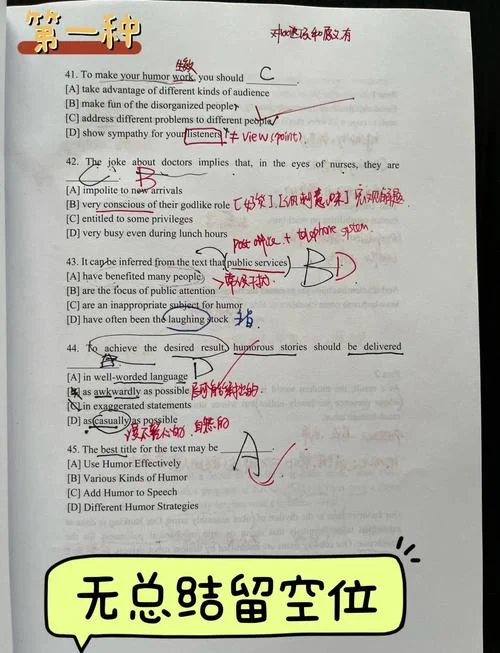 第一种
生效
41. To make your humor work, you should C
[A] take advantage of different kinds of audience
[B] make fun of the disorganized people
[C] address different problems to different people
[D] show sympathy for your listeners ≠ view(point)
42. The joke about doctors implies that, in the eyes of nurses, they are
C B
[A] impolite to new arrivals
[B] very conscious of their godlike role
[C] entitled to some privileges
[D] very busy even during lunch hours
post office + telephone system
43. It can be inferred from the text that public services BD
[A] have benefited many people
[B] are the focus of public attention
[C] are an inappropriate subject for humor
[D] have often been the laughing stock
44. To achieve the desired result, humorous stories should be delivered
D
[A] in well-worded language
[B] as awkwardly as possible
[C] in exaggerated statements
[D] as casually as possible
45. The best title for the text may be A
[A] Use Humor Effectively
[B] Various Kinds of Humor
[C] Add Humor to Speech
[D] Different Humor Strategies
无总结留空位